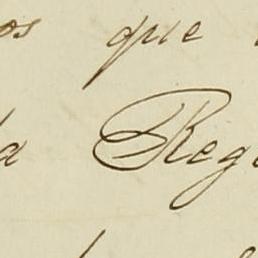 os que
a Reg